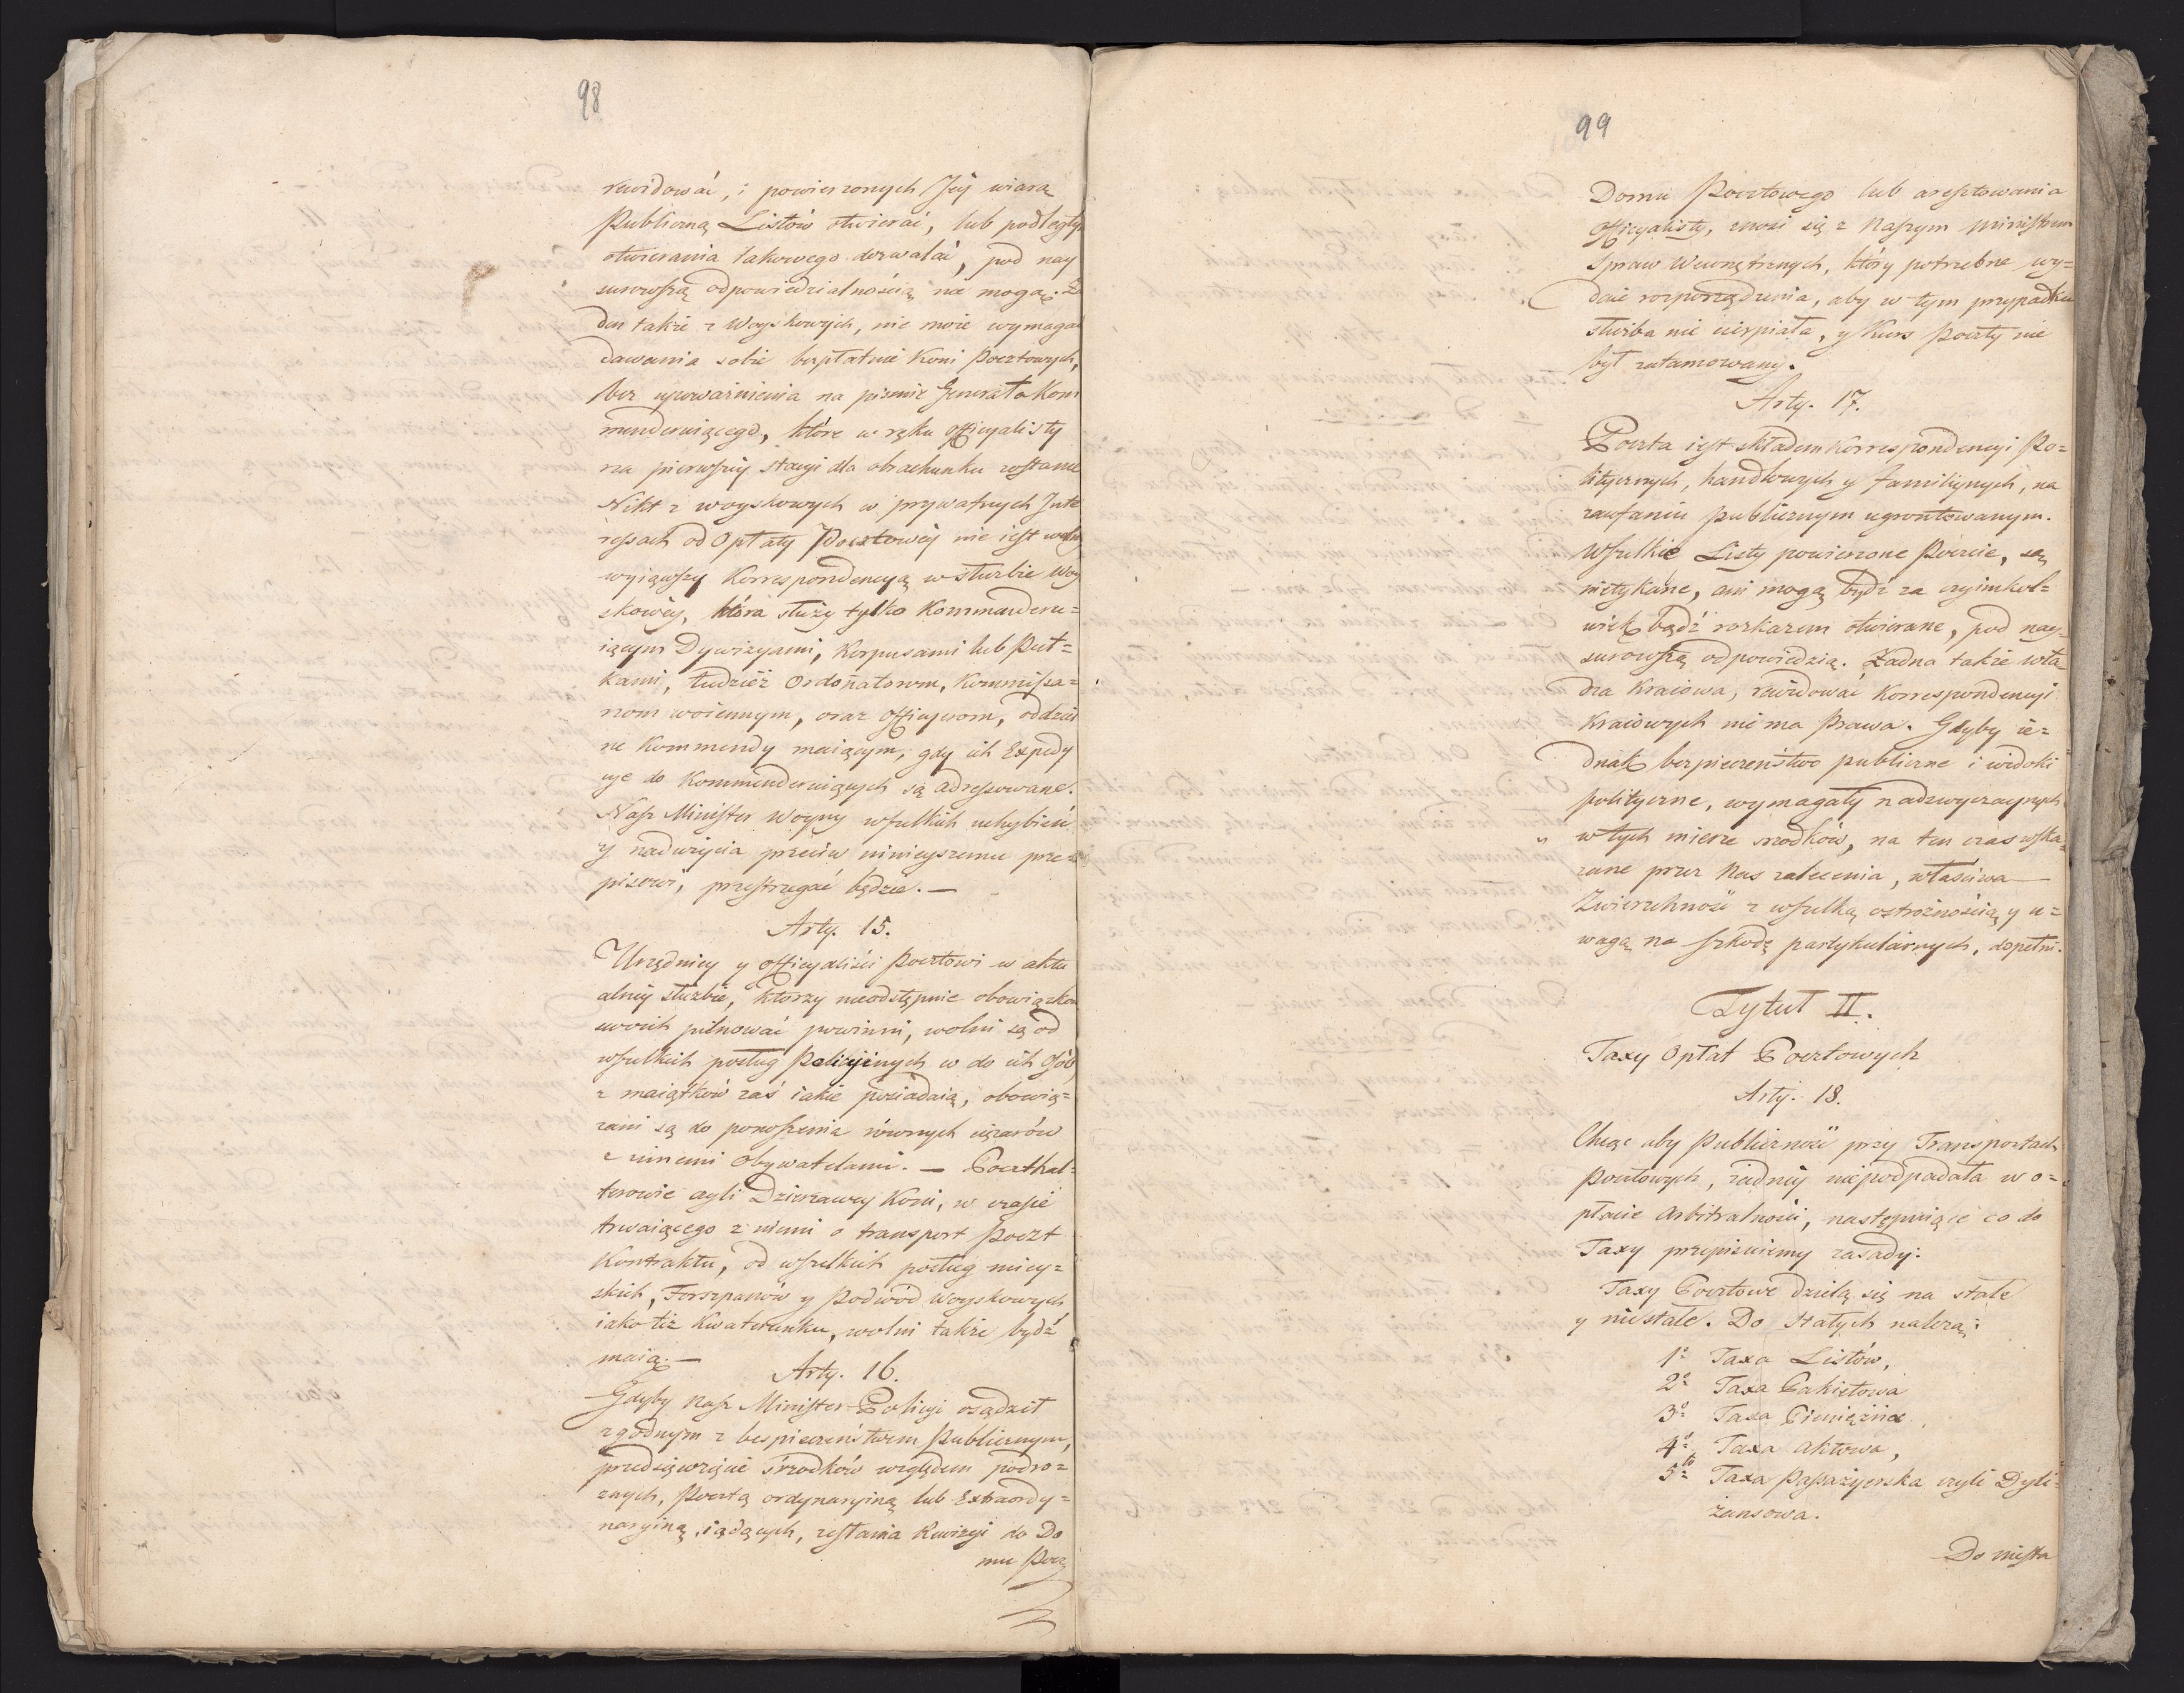 98
rewidować, i powierzonych Jey wiarą
Publiczną Listów otwierać, lub podległym
otwierania takowego dozwalać, pod nay
surowszą odpowiedzialnością nie mogą. Ża
den także z Woyskowych, nie może wymagać
dawania sobie bezpłatnie Koni Pocztowych,
bez upoważnienia na pismie Generała Kom
menderuiącego, które w ręku officyalisty
na pierwszey stacyi dla obrachunku zostanie
Nikt z woyskowych w prywatnych Inte
ressach od Opłaty Pocztowey nie iest wolny
wyiąwszy Korrespondencyą w służbie Woy
skowey, która służy tylko Kommanderu=
iącym Dywizyami, Korpusami lub Puł=
kami, tudzież Ordonatorom, Kommissa=
rzom woiennym, oraz Officyerom, oddziel
ne Kommendy maiącym, gdy ich Expedy
cye do Kommenderuiących są adressowane.
Nasz Minister Woyny wszelkich uchybień
y nadużycia przeciw ninieyszemu prze=
pisowi, przestrzegać będzie. —
Arty. 15.
Urzędnicy y officyaliści Pocztowi w aktu
alney służbie, którzy nieodstępnie obowiązków
swoich pilnować powinni, wolni są od
wszelkich posług Policyinych w do ich Osób,
z maiątków zaś iakie posiadaią, obowią=
zani są do ponoszenia równych ciężarów
z innemi Obywatelami. — Poczthal=
terowie czyli Dzierzawcy Koni, w czasie
trwaiącego z niemi o transport Poczt
Kontraktu, od wszelkich posług miey=
skich, Forszpanów y Podwód Woyskowych
iako też Kwaterunku, wolni także bydź
maią. —
Arty. 16.
Gdyby Nasz Minister Policyi osądził
zgodnym z bespieczeństwem Publicznym,
przedsięwzięcie śrzodków względem podró=
żnych, Pocztą ordynaryiną lub Extraordy=
naryiną iadących, zesłania Rewizyi do Do
mu Pocz
99
Domu Pocztowego lub aresztowania
Officyalisty, znosi się z Naszym Ministrem
Spraw Wewnętrznych, który potrzebne wy=
daie rozporządzenia, aby w tym przypadku
służba nie cierpiała, y Kurs Poczty nie
był zatamowany.
Arty. 17.
Poczta iest składem Korrespondencyi Po=
litycznych, handlowych y familiynych, na
zaufaniu publicznym ugrontowanym.
Wszelkie Listy powierzone Poczcie, są
nietykane, ani mogą bydź za czyimkol=
wiek bądź rozkazem otwierane, pod nay=
surowszą odpowiedzią. Żadna także wła
dza Kraiowa, rewidować Korrespondencyi
Kraiowych nie ma Prawa. Gdyby ie=
dnak bezpieczeństwo publiczne i widoki
polityczne, wymagały nadzwyczaynych
w tych mierze srzodków, na ten czas wska=
zane przez Nas zalecenia, właściwa
Zwierzchność z wszelką ostrożnością y u=
wagą na szkodę partykularnych, dopełni.
Tytuł II.
Taxy Opłat Pocztowych
Arty. 18.
Chcąc aby Publiczność przy Transportach
Pocztowych, żadney niepodpadała w o=
płacie Arbitralności, następuiące co do
Taxy przepisuiemy zasady:
Taxy Pocztowe dzielą się na stałe
y niestałe. Do Stałych należą:
1º Taxa Listów,
2º Taxa Pakietowa
3º Taxa Pieniężna,
4º Taxa Aktowa,
5to Taxa Passażyerska czyli Dyli=
żansowa.
Do niesta